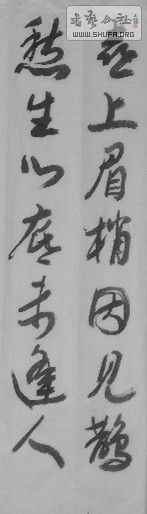 書藝公社
WWW.SHUFA.ORG
喜上眉梢因见鹊
愁生心底未逢人